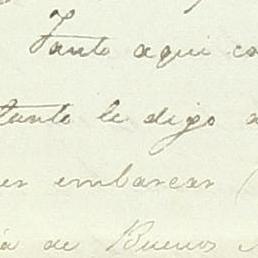 Tanto aqui co
tanto le digo a
er embarcar (
ia de Buenos A